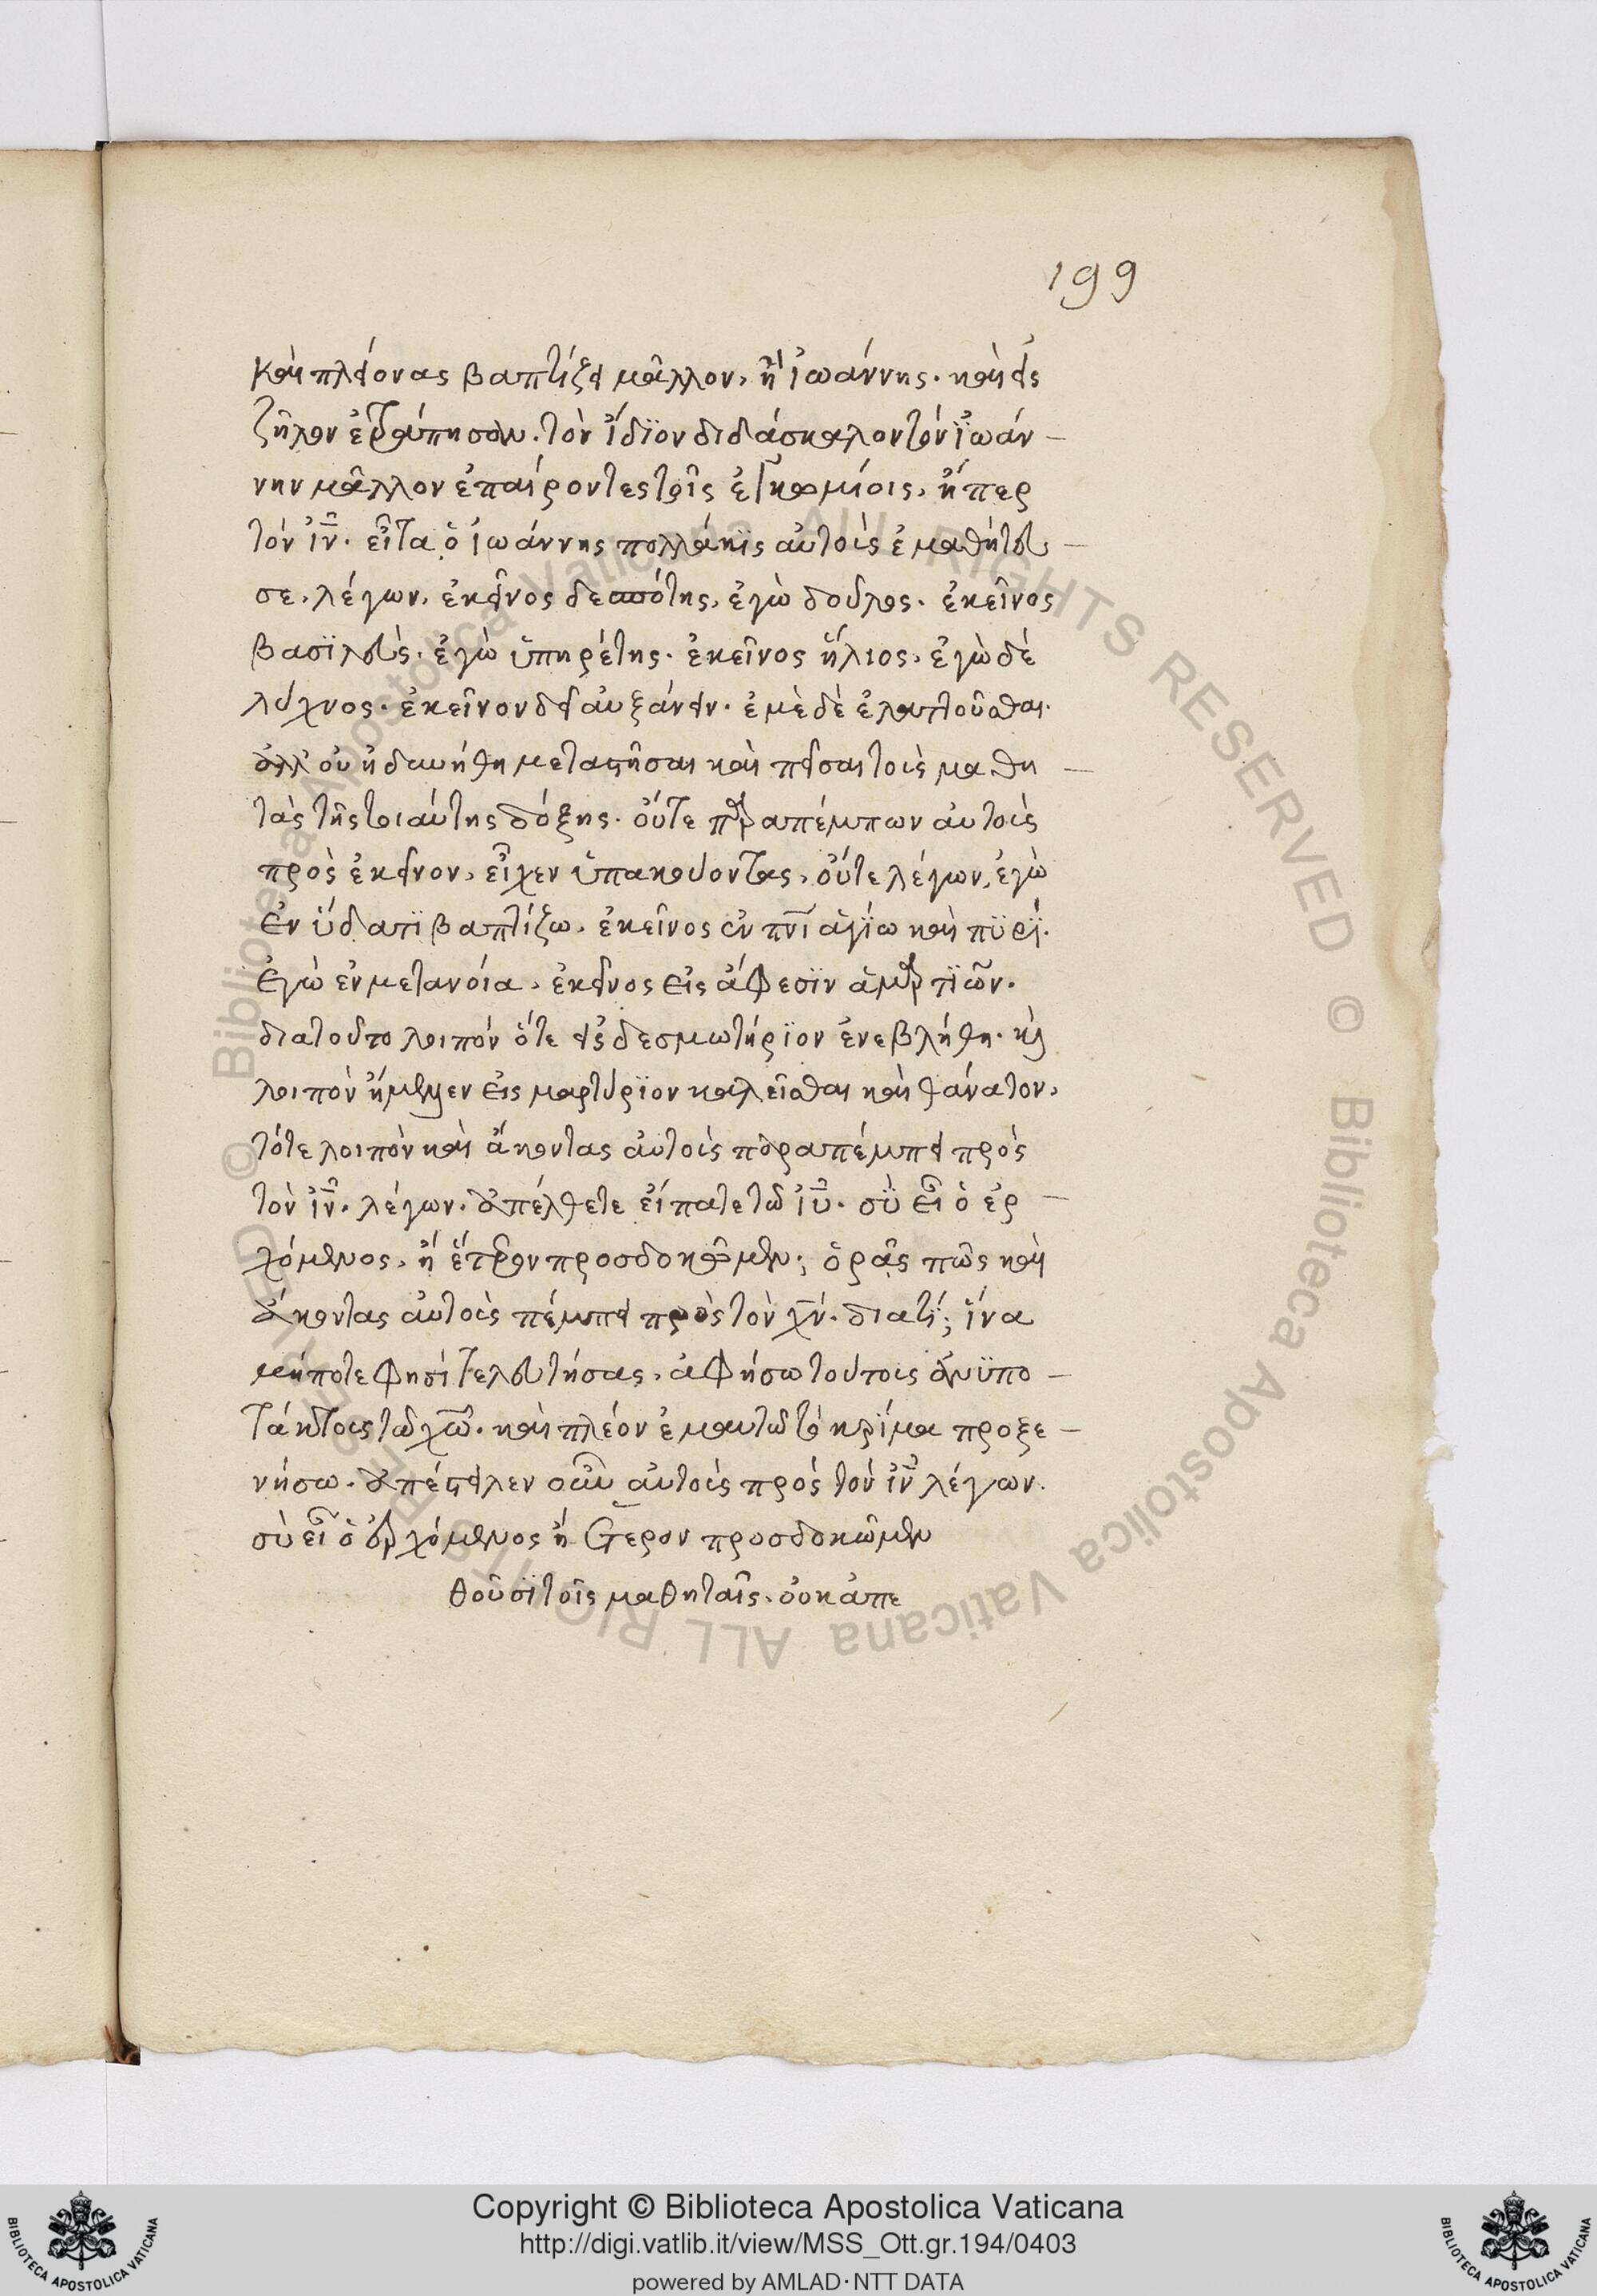 199
καὶ πλείονας βαπτίζει μᾶλλον, ἢ ἰωάννης. καὶ εἰς
ζῆλον ἐτρύπησαν. τὸν ἴδϊον διδάσκαλον τὸν ϊωάν –
νην μᾶλλον ἐπαίροντες τοῖς ἐγκωμίοις, ἤπερ
τὸν ἰν̅. εἶτα ὁ ἰωάννης πολλάκϊς αὐτοὺς ἐμαθήτευ –
σε, λέγων, ἐκεῖνος δεσπότης, ἐγὼ δοῦλος. ἐκεῖνος
βασϊλεὺς, ἐγὼ ὑπηρέτης. ἐκεῖνος ἥλιος, ἐγὼ δὲ
λύχνος. ἐκεῖνον δεῖ αὐξάνειν. ἐμὲ δὲ ἐλαττοῦσθαι.
ἀλλ' οὐκ ἠδυνήθη μεταστῆσαι καὶ πεῖσαι τοὺς μαθη –
τὰς τῆς τοιαύτης δόξης. οὔτε παραπέμπων αὐτοὺς
πρὸς ἐκεῖνον, εἶχεν ὑπακούοντας, οὔτε λέγων, ἐγὼ
ἐν ὕδατϊ βαπτίζω. ἐκεῖνος ἐν πνϊ̅ ἁγίω καὶ πϋρϊ.
ἐγὼ ἐν μετανοία, ἐκεῖνος εἰς ἄφεσϊν ἁμαρτϊῶν.
διατοῦτο λοιπὸν ὅτε εἰς δεσμωτήρϊον ἐνεβλήθη. καὶ
λοιπὸν ἤμελλεν εἰς μαρτύρϊον καλεῖσθαι καὶ θάνατον,
τότε λοιπὸν καὶ ἄκοντας αὐτοὺς παραπέμπει πρὸς
τὸν ἰν̅. λέγων. ἀπέλθετε εἴπατε τῶ ἰυ̅. σϋ εἶ ὁ ἐρ –
χόμενος, ἢ ἕτερον προσδοκῶμεν; ὁρᾶς πῶς καὶ
ἄκοντας αὐτοὺς πέμπει πρὸς τὸν χν̅. διατί; ἵνα
μήποτε φησὶ τελευτήσας, ἀφήσω τούτους ἀνϋπο –
τάκτους τῶ χω̅. καὶ πλέον ἐμαυτῶ τὸ κρίμα προξε –
νήσω. ἀπέστειλεν οὖν αὐτοὺς πρὸς τὸν ἰν̅ λέγων.
σὺ εἶ ὁ ἐρχόμενος ἢ ἕτερον προσδοκῶμεν
θοῦσϊ τοῖς μαθηταῖς. οὐκ ἀπε
Copyright © Biblioteca Apostolica Vaticana
http://digi.vatlib.it/view/MSS_Ott.gr.194/0403
powered by AMLAD·NTT DATA
BIBLIOTECA APOSTOLICA VATICANA
BIBLIOTECA APOSTOLICA VATICANA